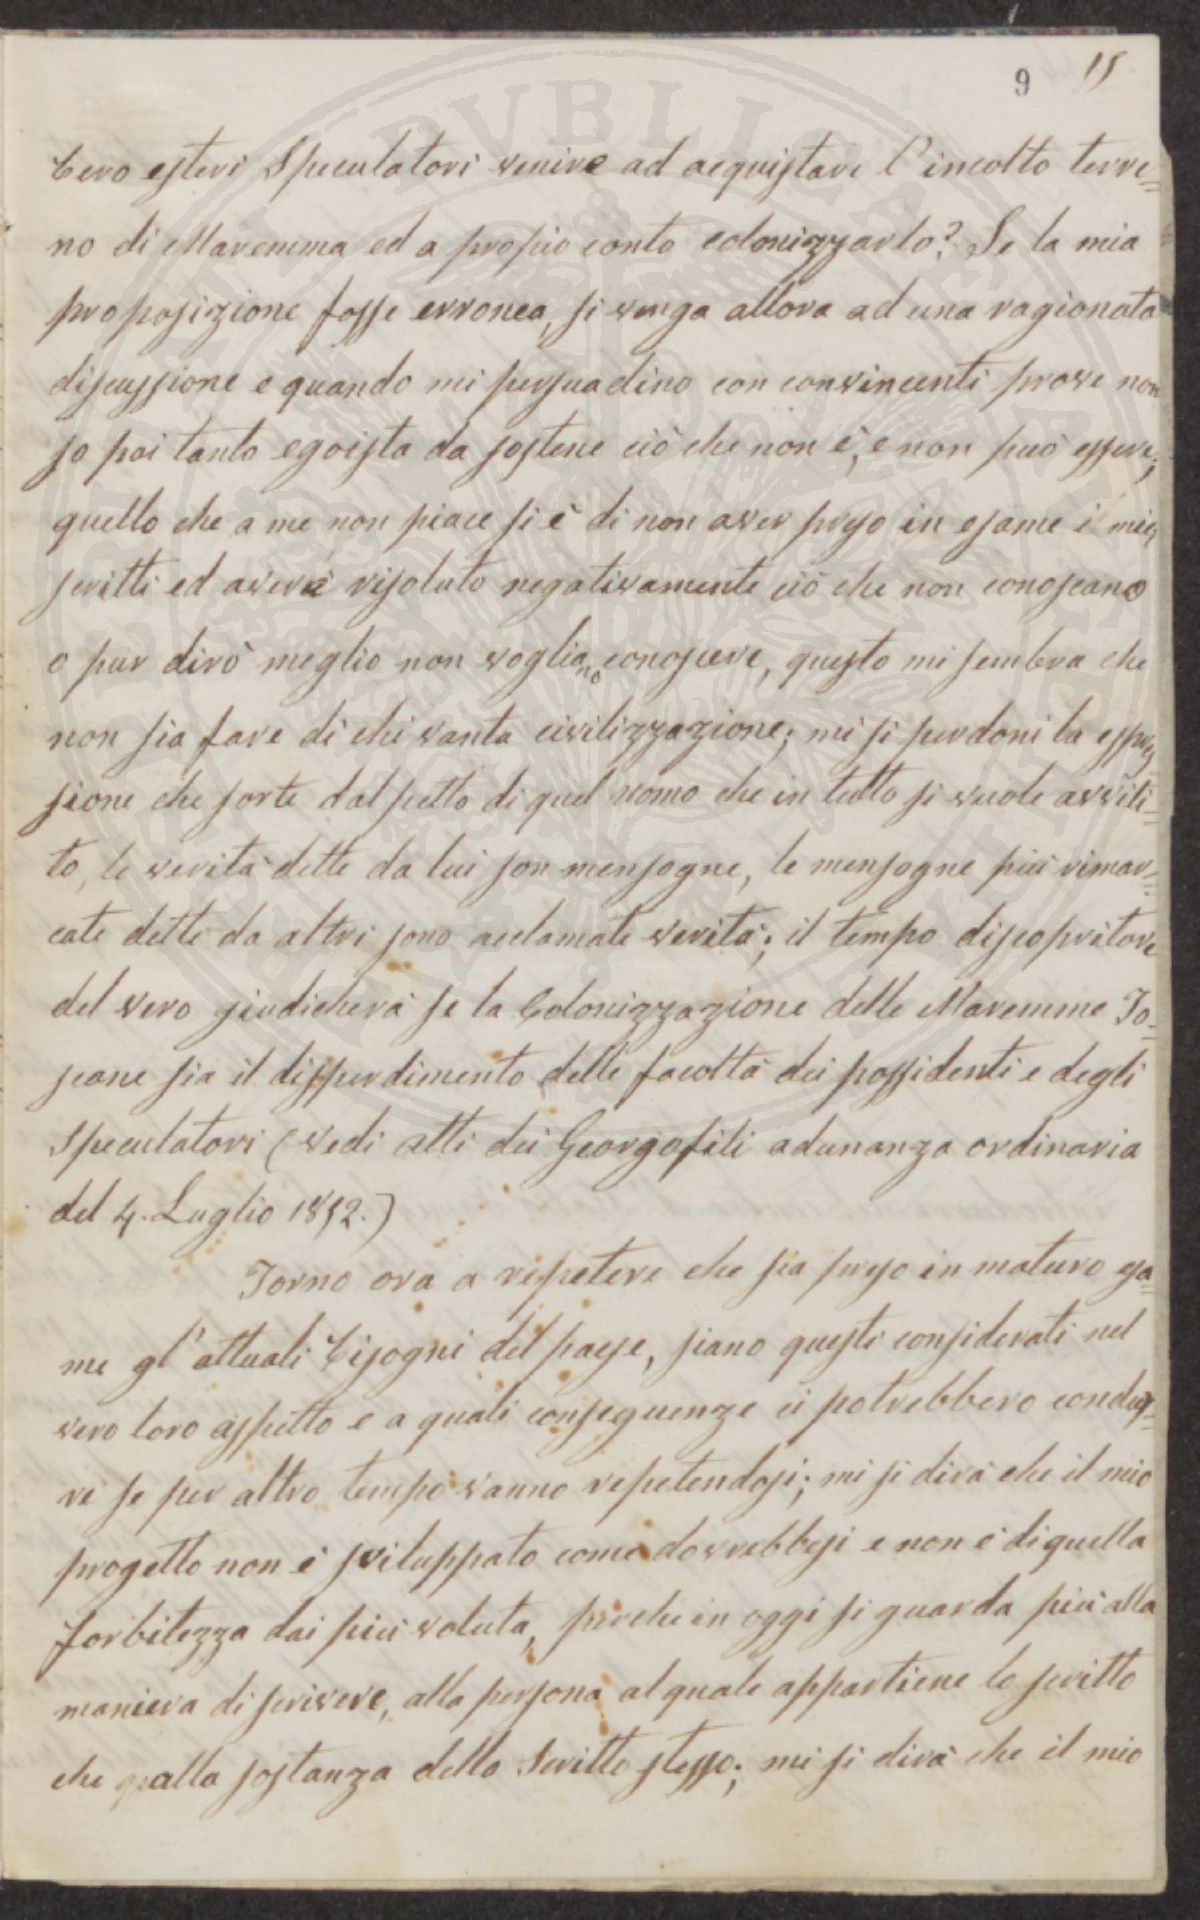 9 15
bero esteri Speculatori venire ad acquistare l'incolto terre=
no di Maremma ed a propio conto colonizzarlo? Se la mia
proposizione fosse erronea, si venga allora ad una ragionata
discussione e quando mi persuadino con convincenti prove non
so poi tanto egoista da sostene ciò che non è, e non può essere;
quello che a me non piace si è di non aver preso in esame i miei
scritti ed avere risoluto negativamente ciò che non conoscano
o pur dirò meglio non vogliano conoscere, questo mi sembra che
non sia fare di chi vanta civilizzazione; mi si perdoni la espres=
sione che sorte dal petto di quel uomo che in tutto si vuole avvili=
to, le verità dette da lui son mensogne, le mensogne più rimar=
cate dette da altri sono acclamate verità; il tempo discopritore
del vero giudicherà se la Colonizzazione delle Maremme To=
scane sia il disperdimento delle facoltà dei possidenti e degli
Speculatori (vedi atti dei Georgofili adunanza ordinaria
del 4. Luglio 1852.)
Torno ora a repetere che sia preso in maturo esa=
me gl'attuali bisogni del paese, siano questi considerati nel
vero loro aspetto e a quali conseguenze ci potrebbero condur=
re se per altro tempo vanno repetendosi; mi si dirà che il mio
progetto non è sviluppato come dovrebbesi e non è di quella
forbitezza dai più voluta, perche in oggi si guarda più alla
maniera di scrivere, alla persona al quale appartiene lo scritto
che alla sostanza dello Scritto stesso; mi si dirà che il mio